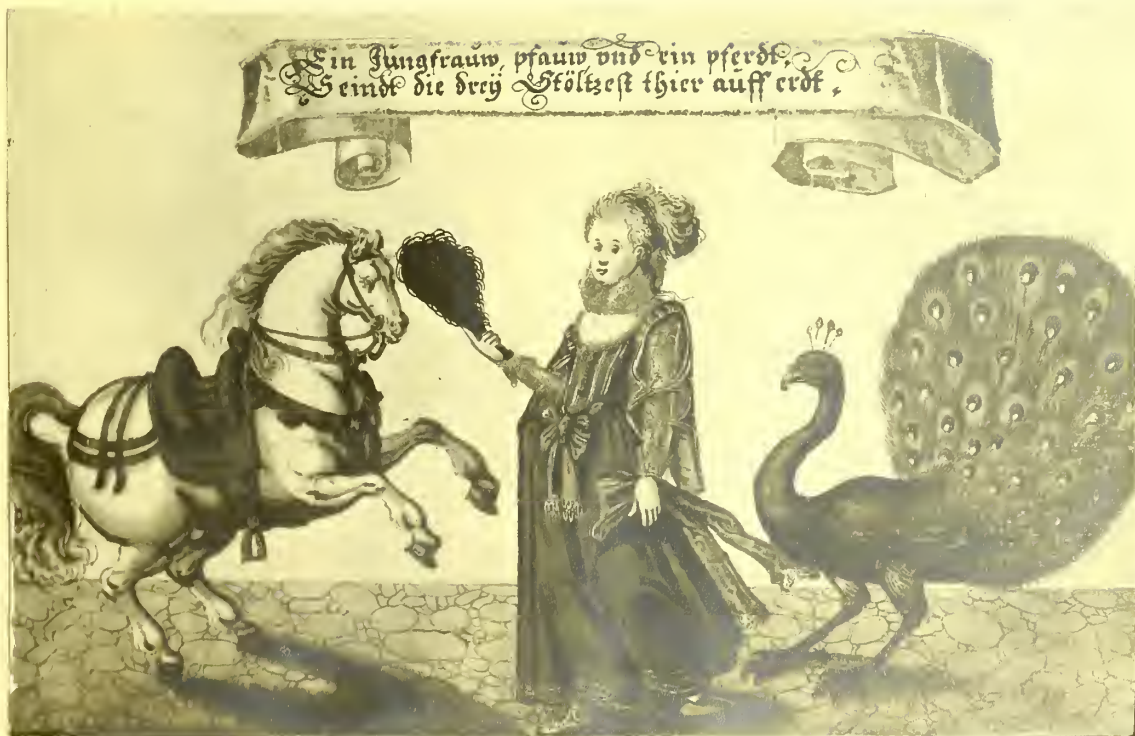 Ein Jungfrauw, pfauw vnd ein pferdt,
Seindt die dreÿ Stöltzest thier auff erdt,